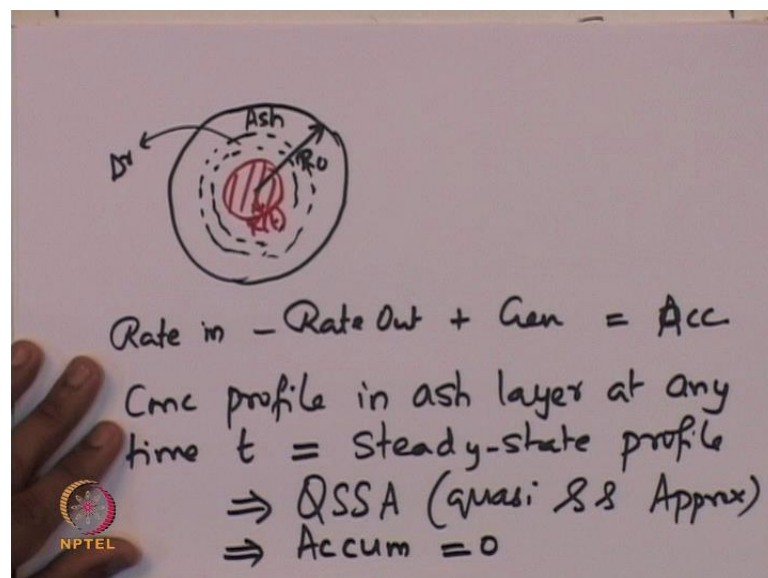 Ash
Δr
R0
R(t)
Rate in - Rate Out + Gen = Acc
Conc profile in ash layer at any
time t = Steady-state profile
⇒ QSSA (quasi SS Approx)
⇒ Accum = 0
NPTEL